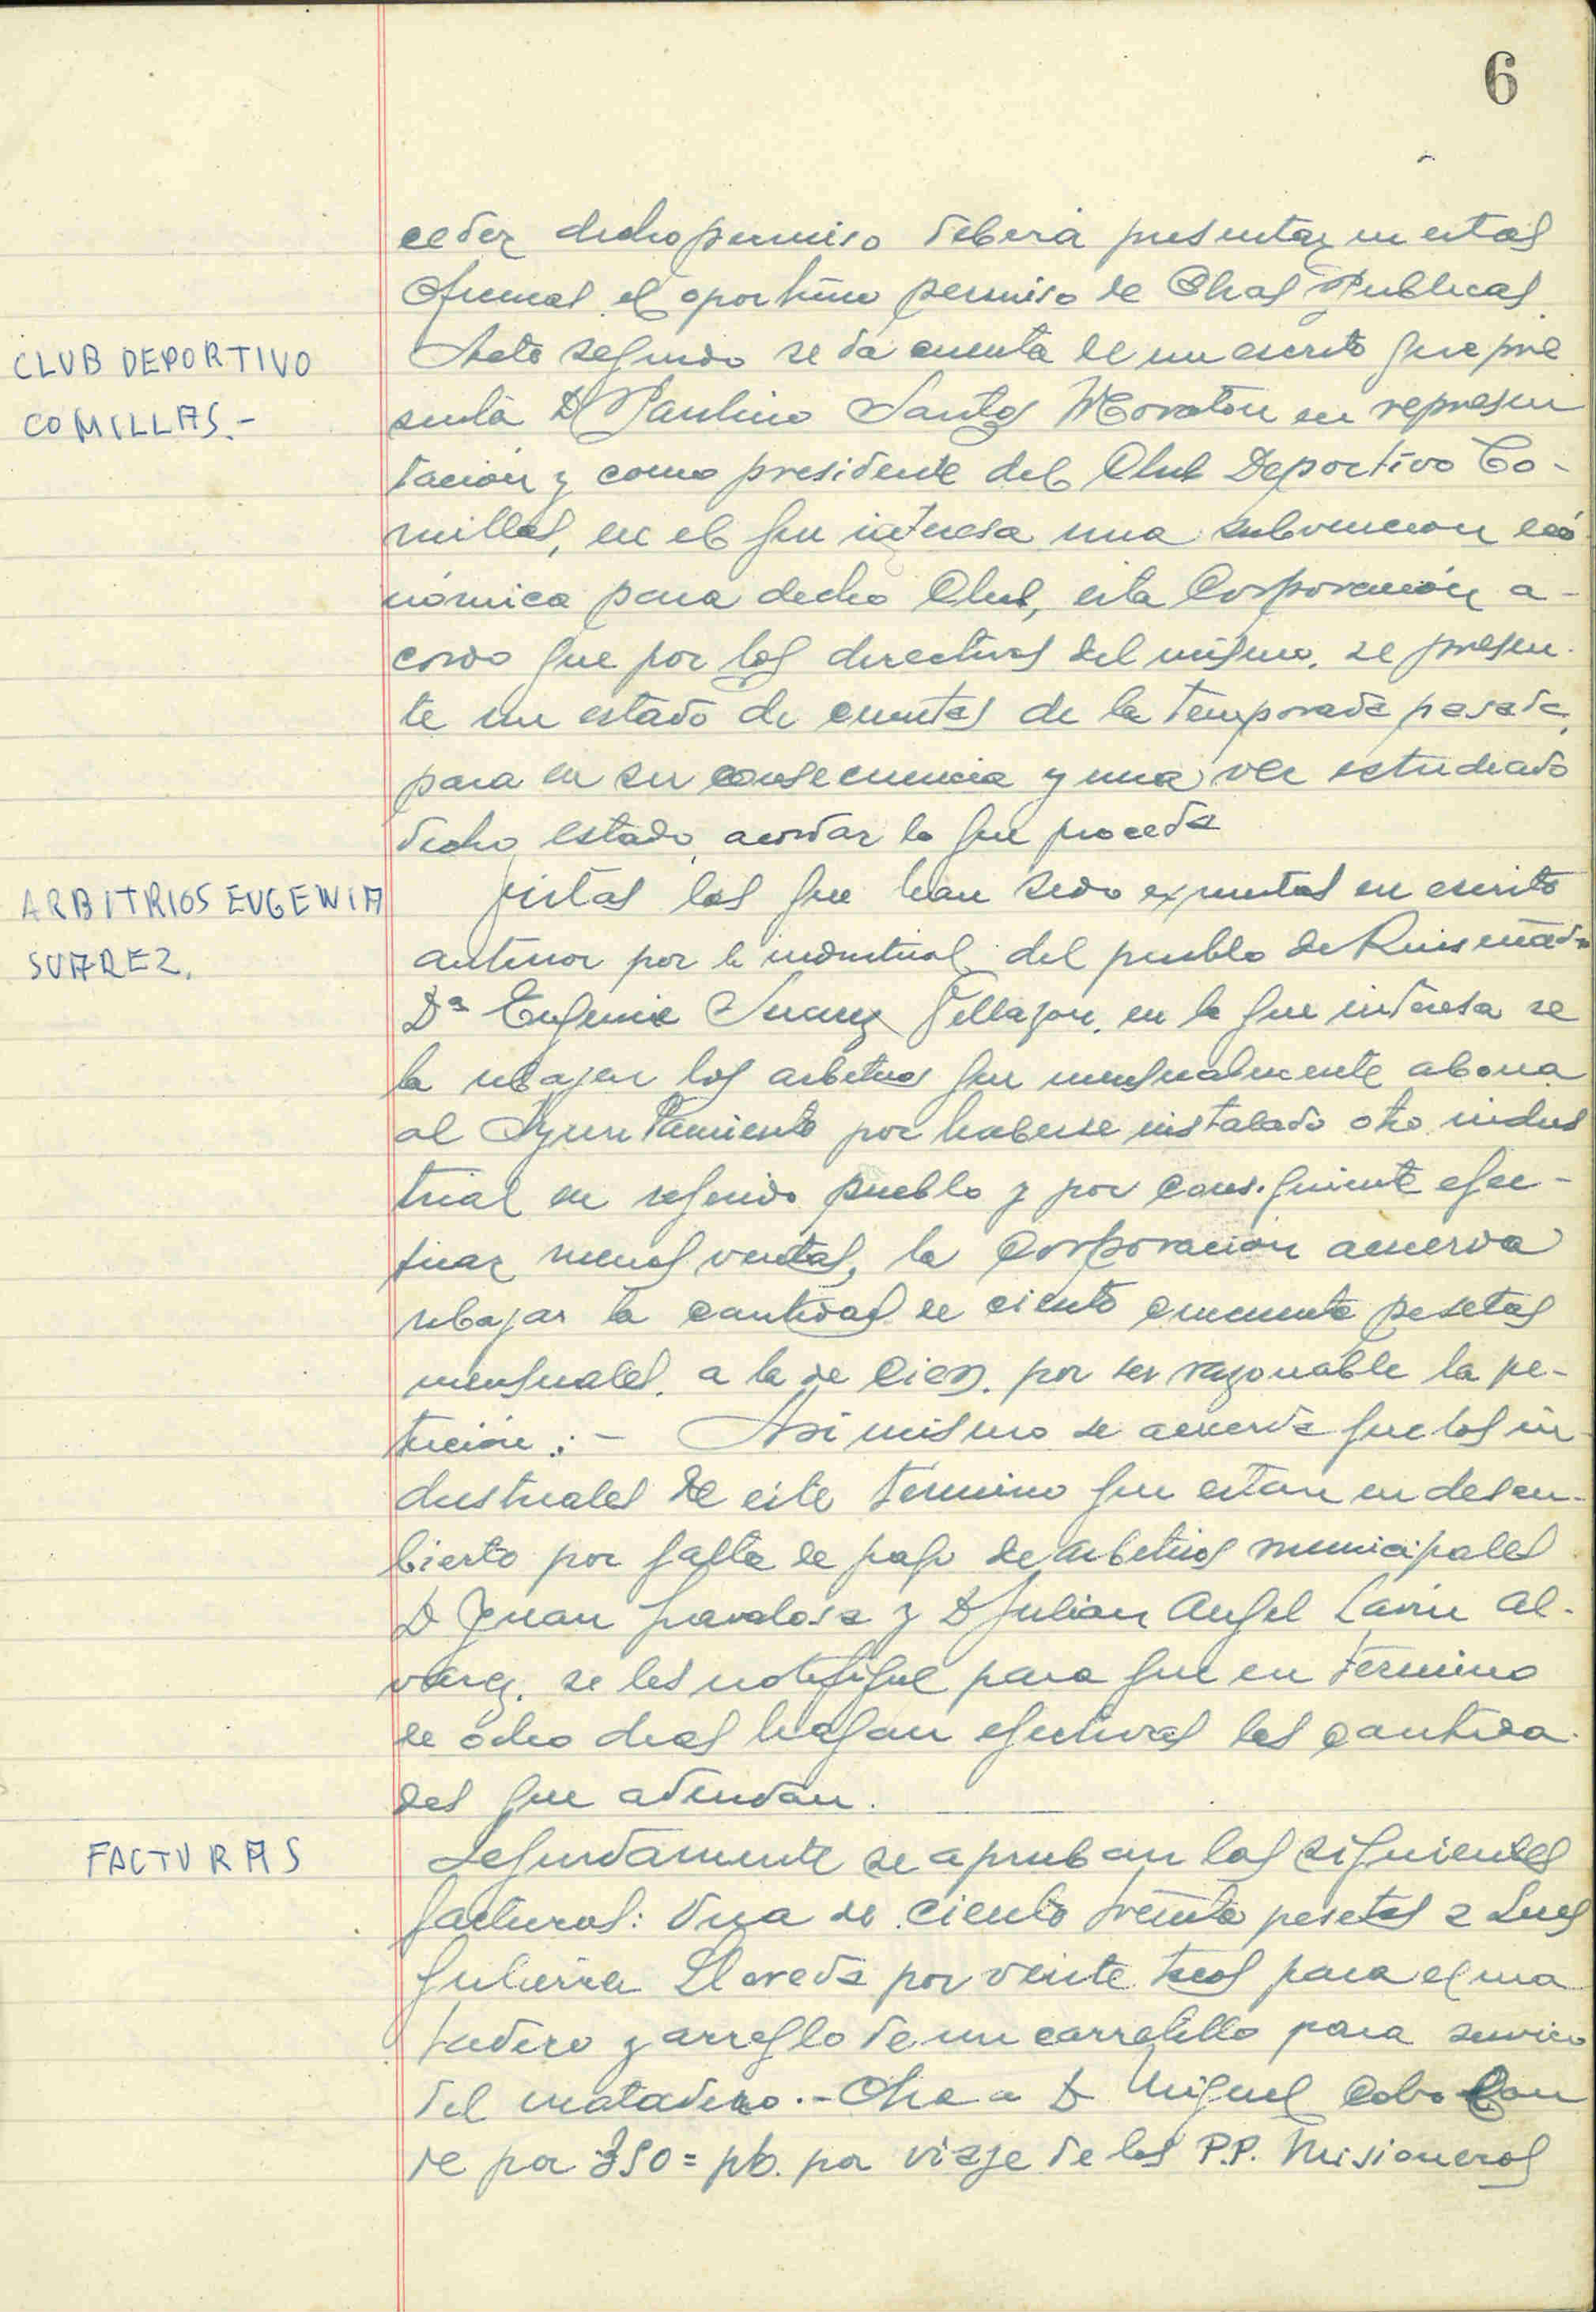 6
ceder dicho permiso deberá presentar en estas
Oficinas el oportuno permiso de Obras Publicas
CLUB DEPORTIVO
COMILLAS.-
Acto seguido se da cuenta de un escrito que pre
senta D Paulino Santos Moraton en represen
tación y como presidente del Club Deportivo Co-
millas, en el que interesa una subvencion eco
nómica para dicho Club, esta Corporación a-
cordo que por los directivos del mismo, se presen-
te un estado de cuentas de la temporada pasada,
para en su consecuencia y una vez estudiado
dicho estado, acordar lo que proceda
ARBITRIOS EUGENIA
SUAREZ.
Vistas las que han sido expuestas en escrito
anterior por la industrial del pueblo de Ruiseñada
Dª Eugenia Suarez Villazon, en la que interesa se
la rebajen los arbitrios que mensualmente abona
al Ayuntamiento por haberse instalado otro indus
trial en referido pueblo y por consiguiente efec-
tuar menos ventas, la Corporación acuerda
rebajar la cantidad de ciento cincuenta pesetas
mensuales, a la de cien, por ser razonable la pe-
tición.:- Asi mismo se acuerda que los in-
dustriales de este término que estan en descu-
bierto por falta de pago de arbitrios municipales
D Juan y D Julian Angel Lavin Al-
varez, se les notifique para que en termino
de ocho dias hagan efectivas las cantida-
des que adeudan.
FACTURAS
Segundamente se aprueban las siguientes
facturas: Una de ciento treinta pesetas a Luis
Gutierrez Lloreda por veinte tacos para el ma
tadero y arreglo de un carretillo para servicio
del matadero.- Otra a D Miguel Cobo Con
de por 350= pts. por viaje de los P.P. Misioneros